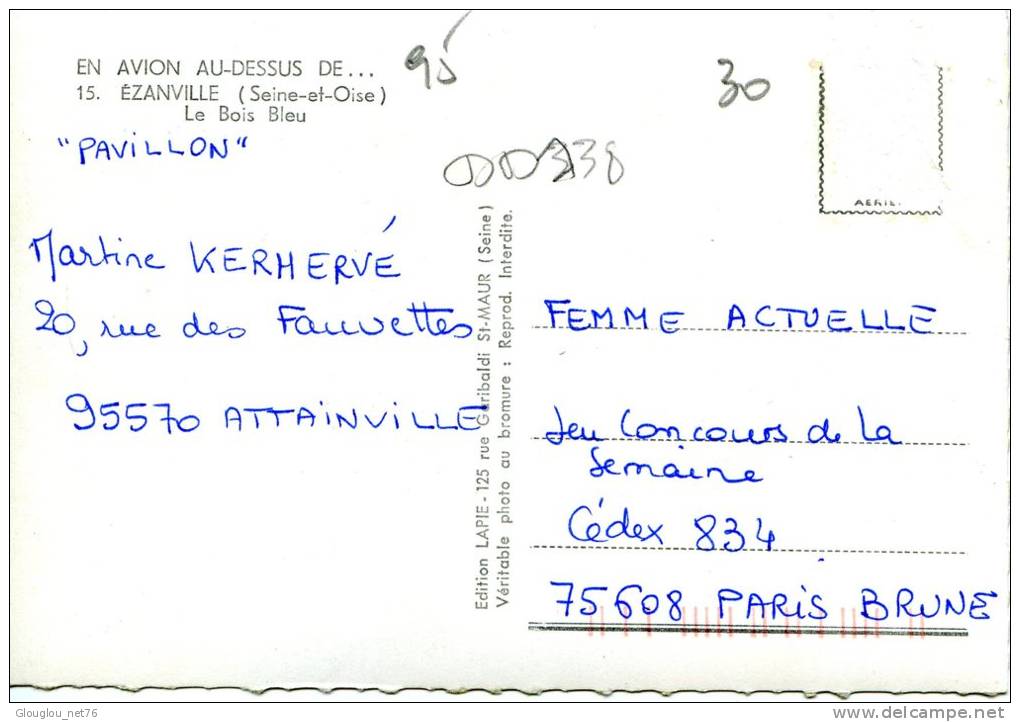 EN AVION AU-DESSUS DE...
15. ÉZANVILLE (Seine-et-Oise)
Le Bois Bleu
"PAVILLON"
95
30
000338
Martine KERHERVÉ
20, rue des Fauvettes
95570 ATTAINVILLE
Edition LAPIE - 125 rue Garibaldi St-MAUR (Seine)
Véritable photo au bromure : Reprod. Interdite.
FEMME ACTUELLE
Jeu Concours de La
Semaine
Cédex 834
75608 PARIS BRUNE
Glouglou_net76
www.delcampe.net